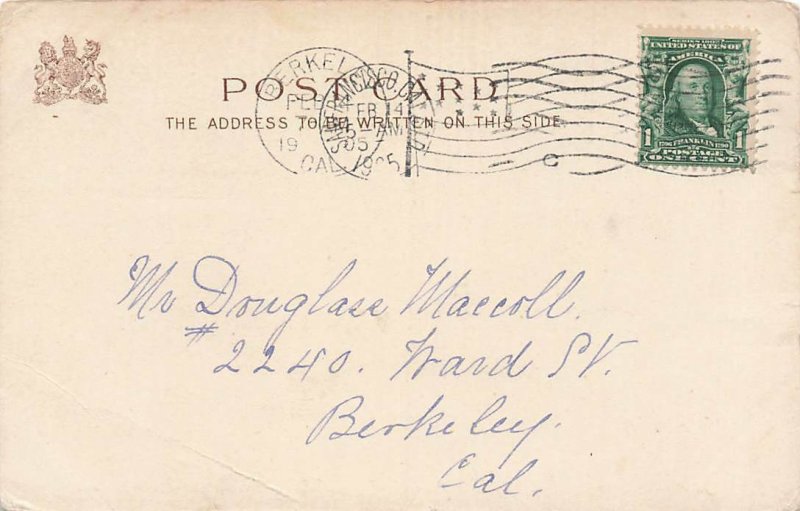 POST CARD
THE ADDRESS TO BE WRITTEN ON THIS SIDE
BERKEL
CAL
19
SAN FRANCISCO, CAL
FEB 14
5 - AM
05
1905
C
SERIES 1902
UNITED STATES OF
AMERICA
1 1
1706 FRANKLIN 1790
POSTAGE
ONE CENT
Mr Douglass Maccoll.
# 2240. Ward St.
Berkeley.
Cal.